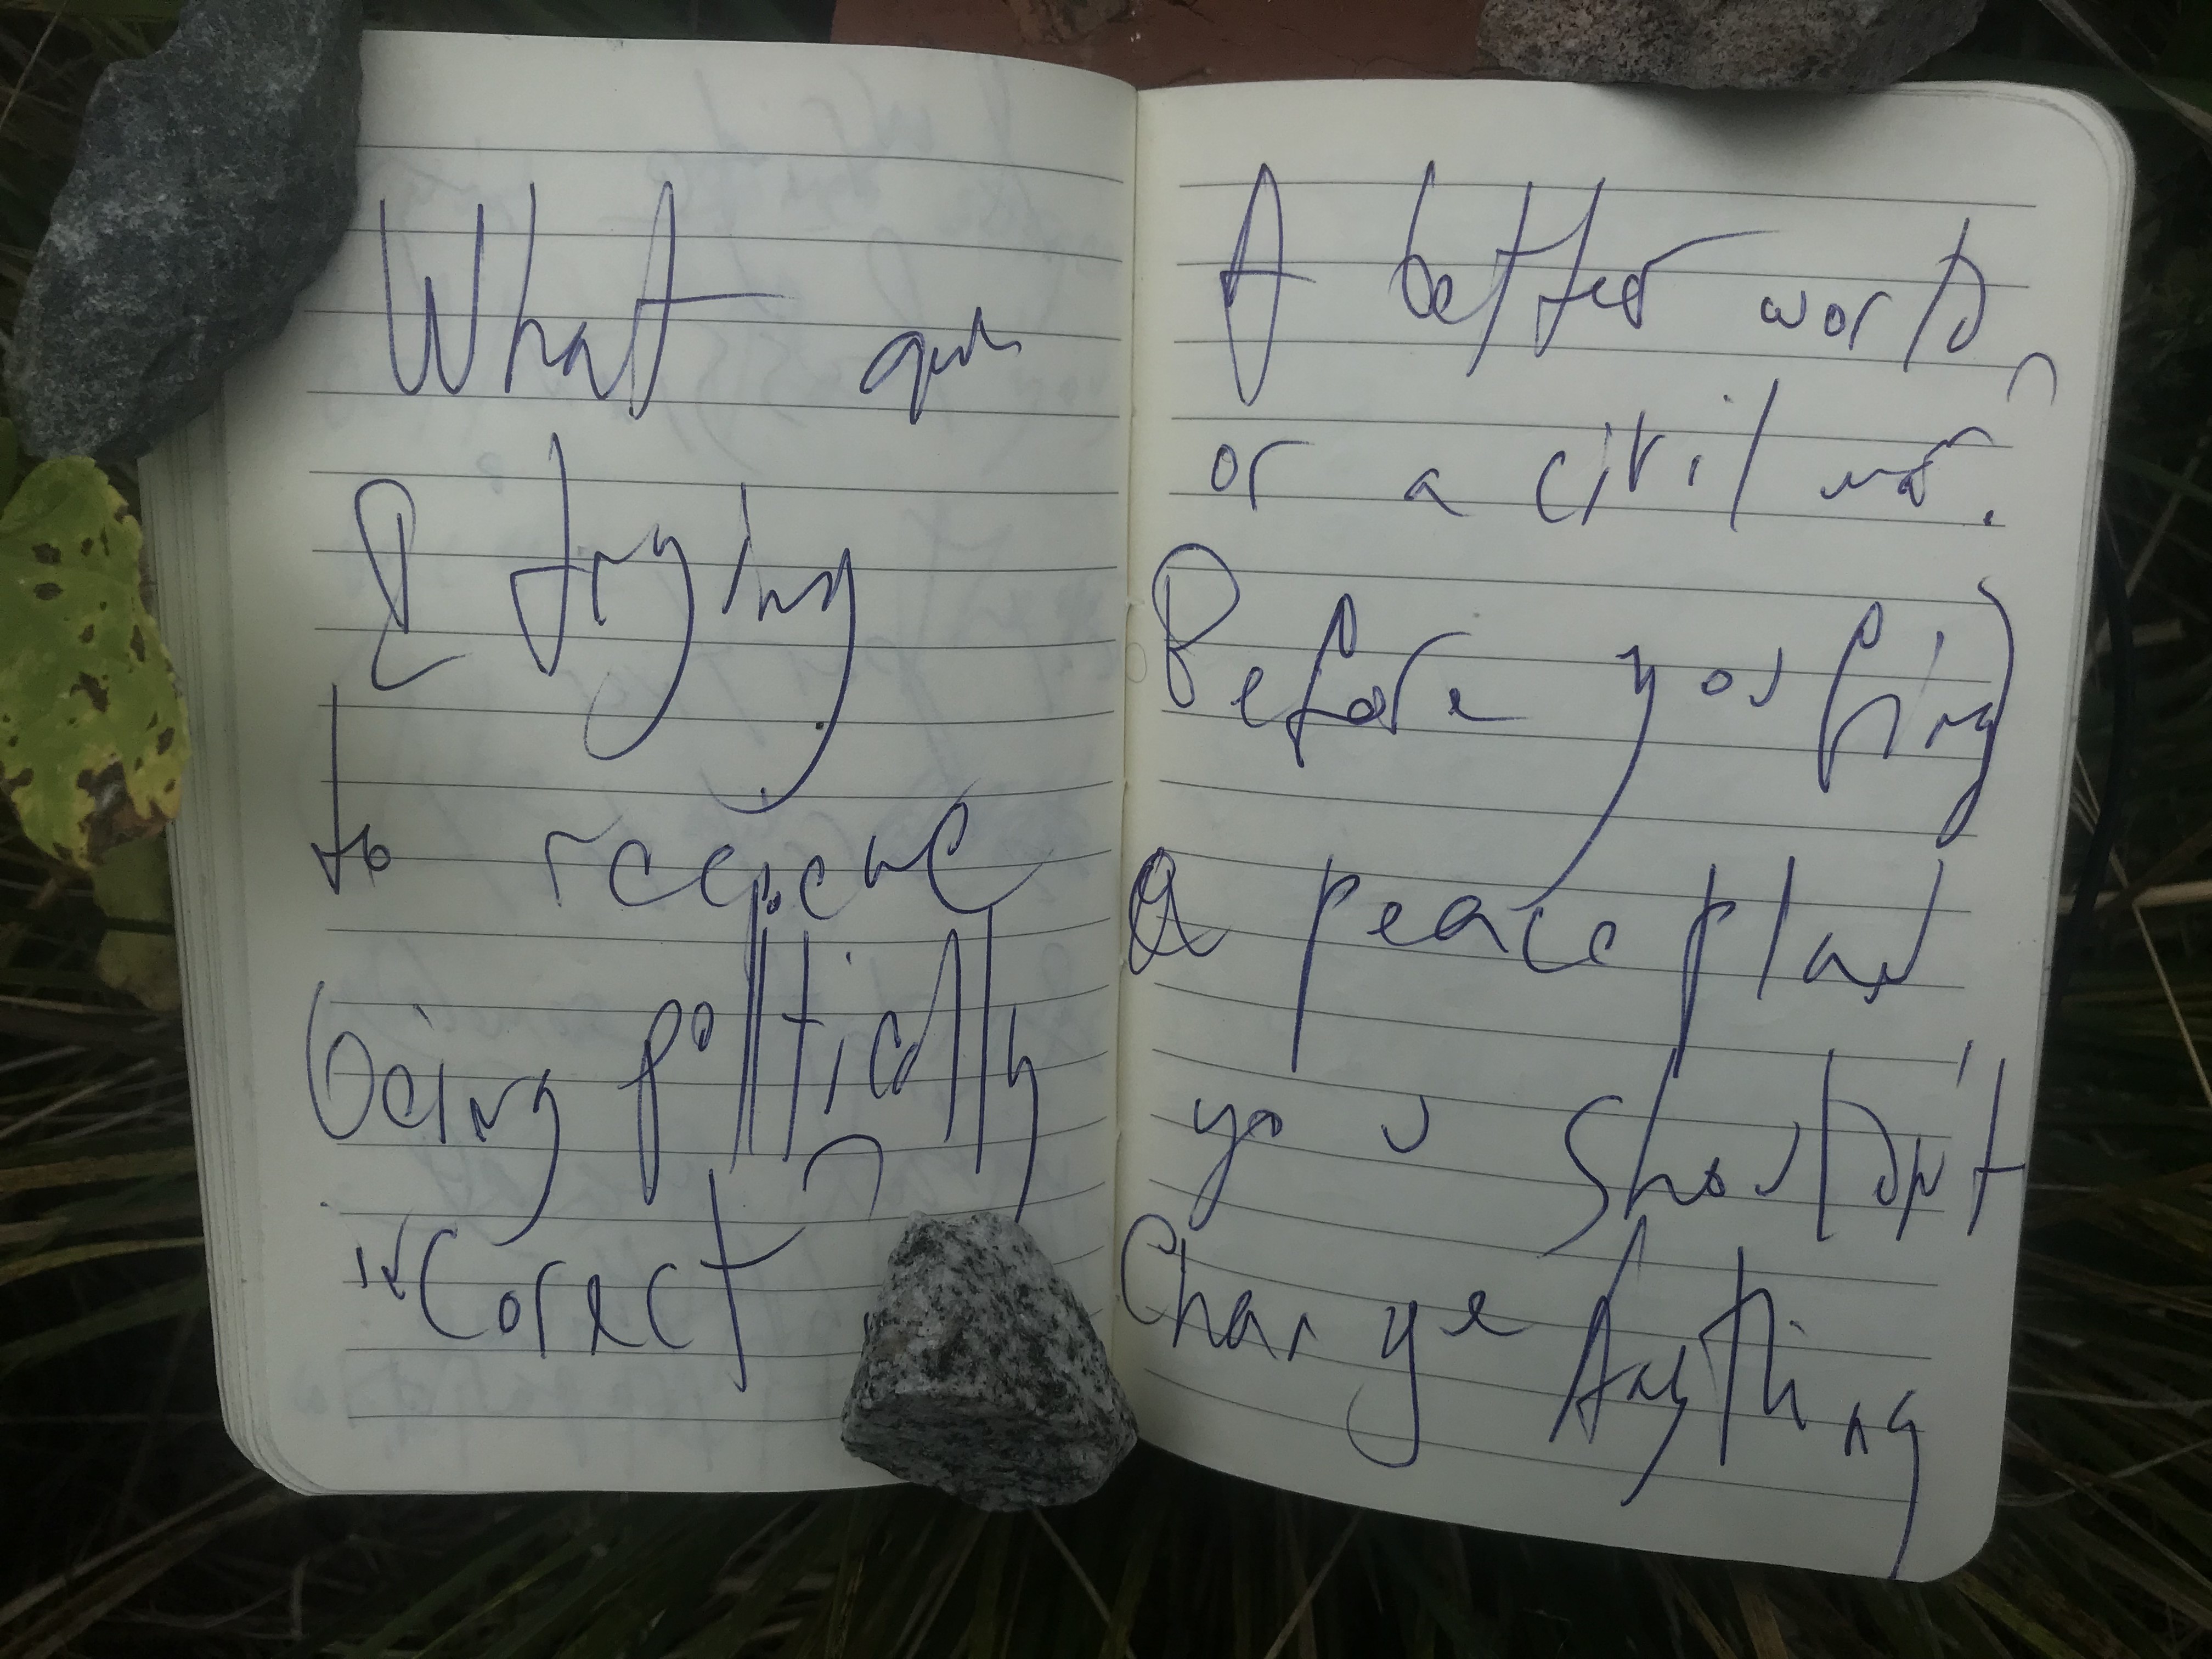 What am
I trying
to rescue
Being politically
incorrect
A better world
or a civil war.
Before you bring
a peace plan
you shouldn't
Change Anything